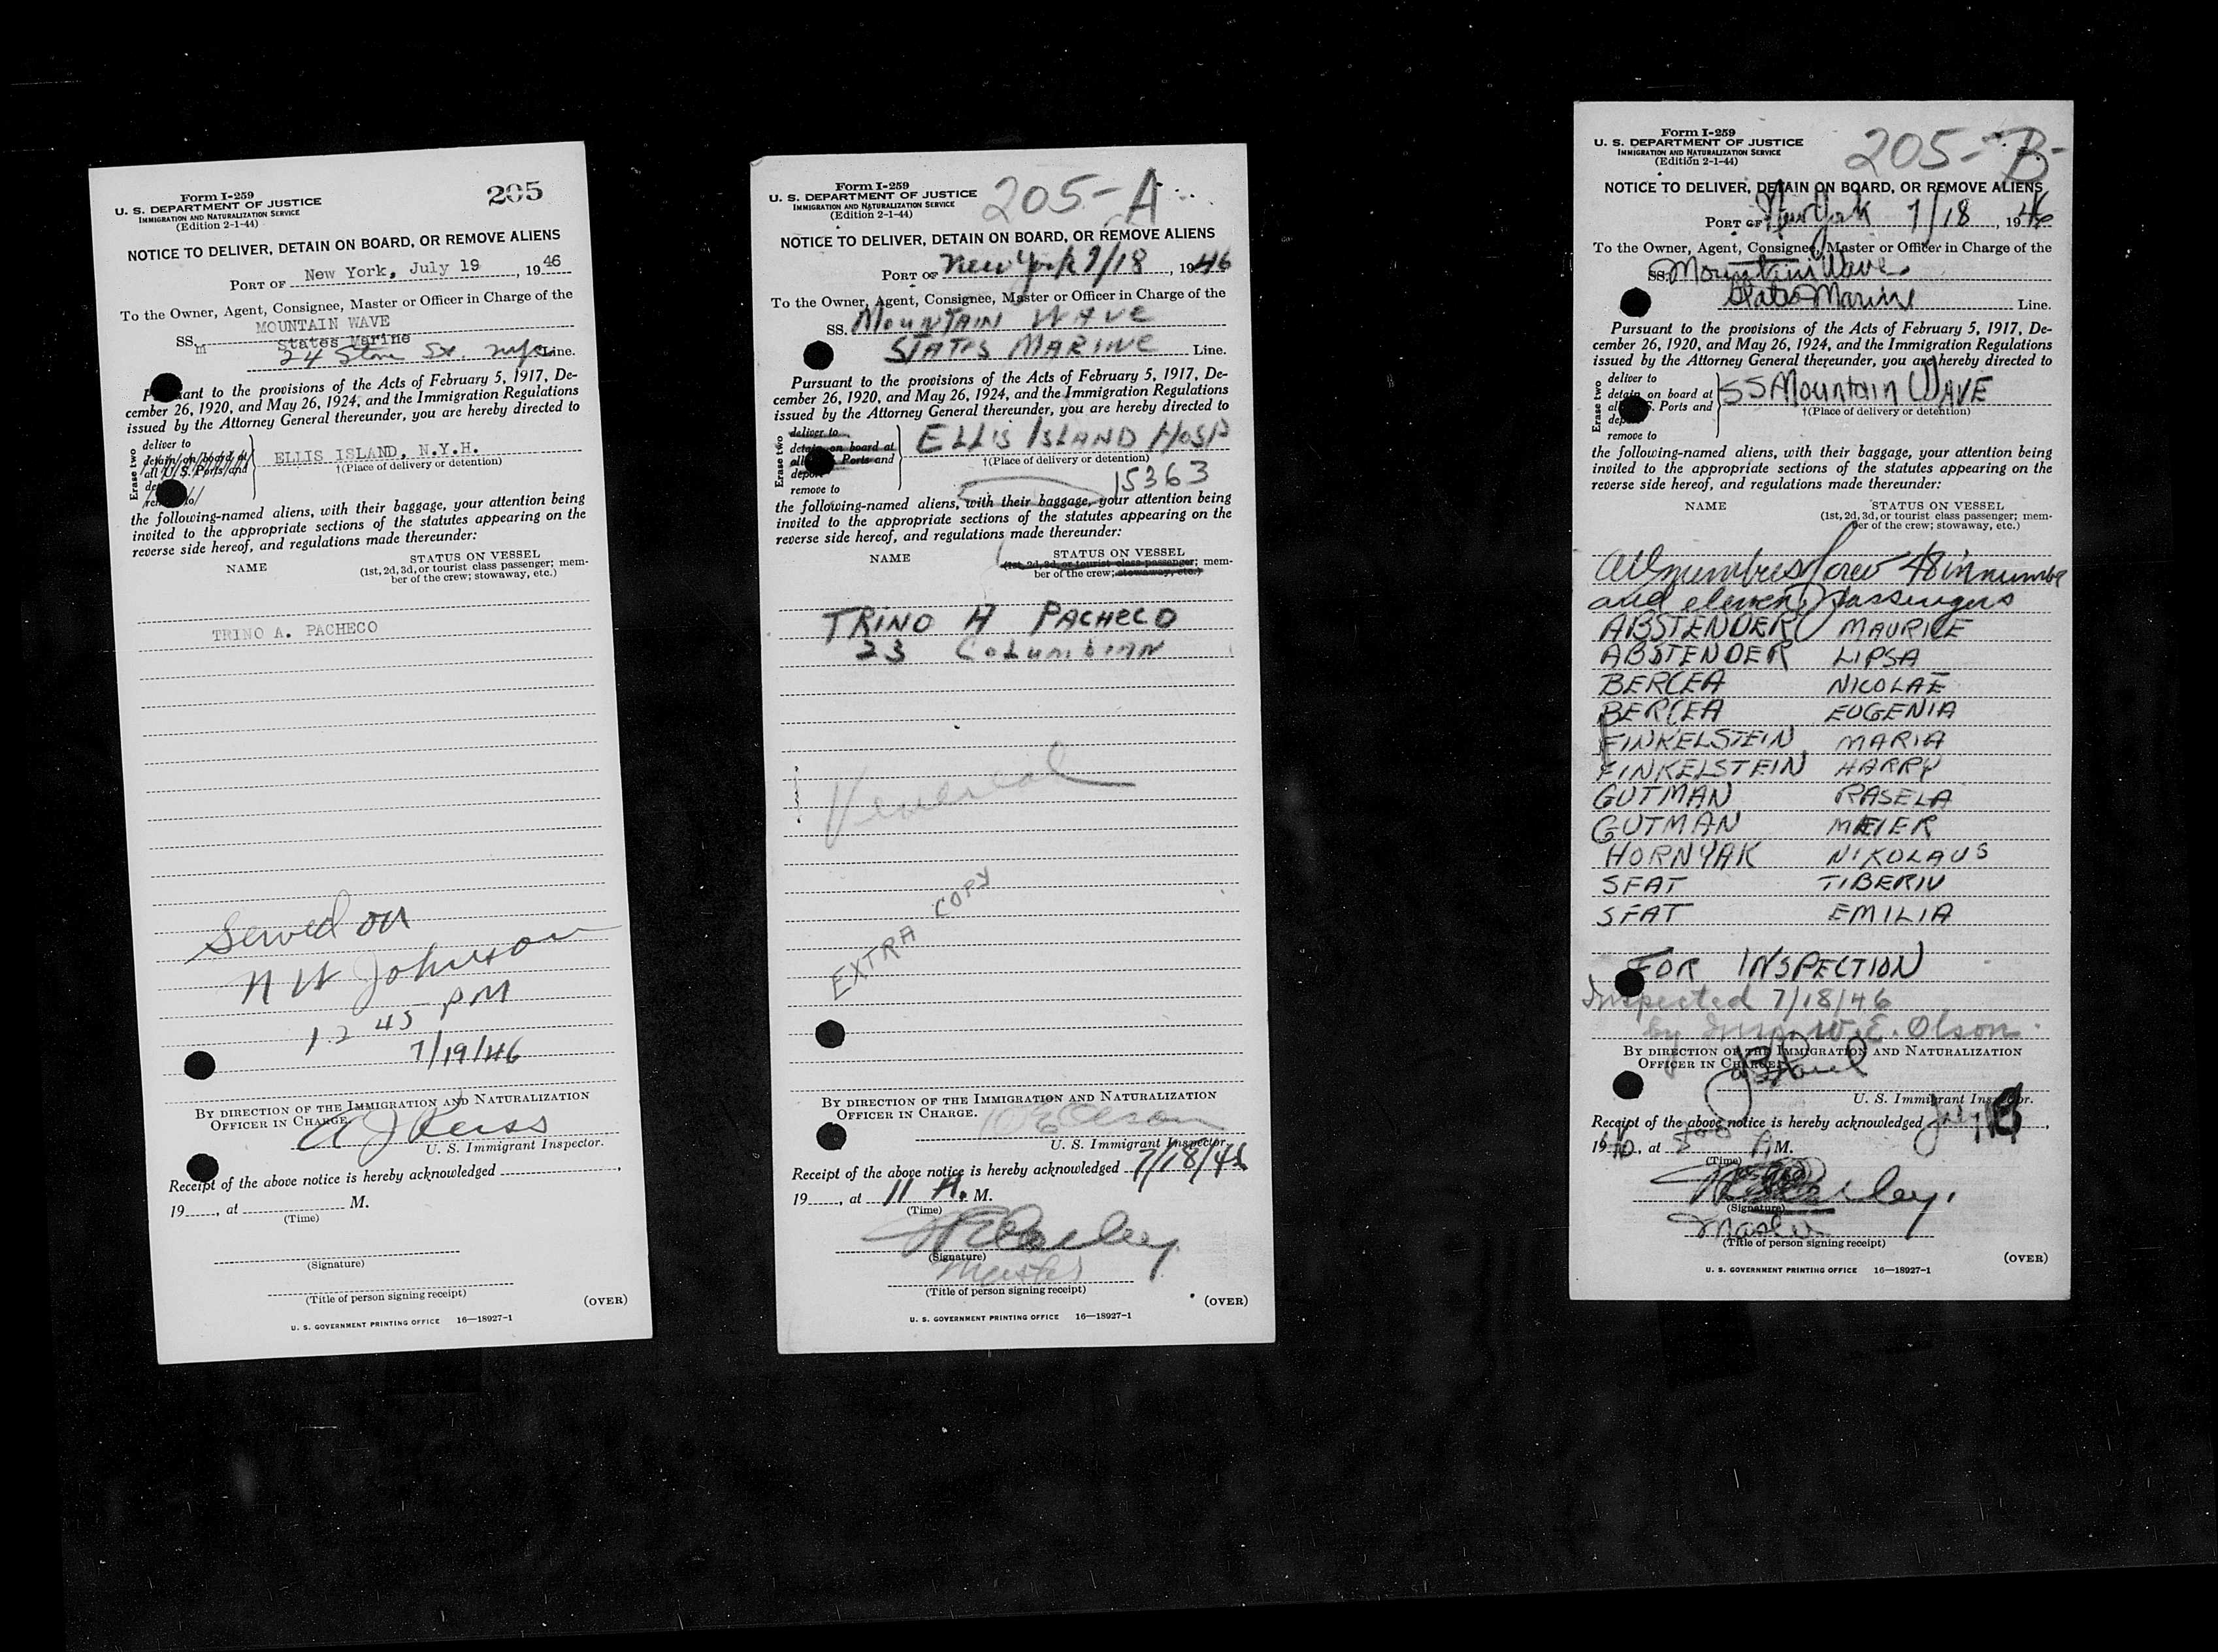 205
Form I-259
U. S. DEPARTMENT OF JUSTICE
IMMIGRATION AND NATURALIZATION SERVICE
(Edition 2-1-44)
NOTICE TO DELIVER, DETAIN ON BOARD, OR REMOVE ALIENS
PORT OF New York, July 19, 1946
To the Owner, Agent, Consignee, Master or Officer in Charge of the
MOUNTAIN WAVE
SS. m States Marine
24 Stone St. nyc Line.
Pursuant to the provisions of the Acts of February 5, 1917, De-
cember 26, 1920, and May 26, 1924, and the Immigration Regulations
issued by the Attorney General thereunder, you are hereby directed to
Erase two
deliver to
detain on board at
all U. S. Ports and
ELLIS ISLAND, N.Y.H.
†(Place of delivery or detention)
the following-named aliens, with their baggage, your attention being
invited to the appropriate sections of the statutes appearing on the
reverse side hereof, and regulations made thereunder:
NAME
STATUS ON VESSEL
(1st, 2d, 3d, or tourist class passenger; mem-
ber of the crew; stowaway, etc.)
TRINO A. PACHECO
Served on
N W Johnson
12 45 PM
7/19/46
BY DIRECTION OF THE IMMIGRATION AND NATURALIZATION
OFFICER IN CHARGE.
U. S. Immigrant Inspector.
Receipt of the above notice is hereby acknowledged
19, at M.
(Time)
(Signature)
(Title of person signing receipt)
(OVER)
U. S. GOVERNMENT PRINTING OFFICE 16—18927-1
205-A
Form I-259
U. S. DEPARTMENT OF JUSTICE
IMMIGRATION AND NATURALIZATION SERVICE
(Edition 2-1-44)
NOTICE TO DELIVER, DETAIN ON BOARD, OR REMOVE ALIENS
PORT OF New York 7/18, 1946
To the Owner, Agent, Consignee, Master or Officer in Charge of the
SS. MOUNTAIN WAVE
STATES MARINE Line.
Pursuant to the provisions of the Acts of February 5, 1917, De-
cember 26, 1920, and May 26, 1924, and the Immigration Regulations
issued by the Attorney General thereunder, you are hereby directed to
Erase two
deliver to
detain on board at
all Ports and
deport
remove to
ELLIS ISLAND HOSP
†(Place of delivery or detention)
15363
the following-named aliens, with their baggage, your attention being
invited to the appropriate sections of the statutes appearing on the
reverse side hereof, and regulations made thereunder:
NAME
STATUS ON VESSEL
(1st, 2d, 3d, or tourist class passenger; mem-
ber of the crew; stowaway, etc.)
TRINO A PACHECO
23 Columbian
Venereal
EXTRA COPY
BY DIRECTION OF THE IMMIGRATION AND NATURALIZATION
OFFICER IN CHARGE.
W E Olson
U. S. Immigrant Inspector.
Receipt of the above notice is hereby acknowledged 7/18/46
19, at 11 A. M.
(Time)
(Signature)
Master
(Title of person signing receipt)
(OVER)
U. S. GOVERNMENT PRINTING OFFICE 16—18927-1
205-B-
Form I-259
U. S. DEPARTMENT OF JUSTICE
IMMIGRATION AND NATURALIZATION SERVICE
(Edition 2-1-44)
NOTICE TO DELIVER, DETAIN ON BOARD, OR REMOVE ALIENS
PORT OF New York 7/18, 1946
To the Owner, Agent, Consignee, Master or Officer in Charge of the
SS. Mountain Wave
States Marine Line.
Pursuant to the provisions of the Acts of February 5, 1917, De-
cember 26, 1920, and May 26, 1924, and the Immigration Regulations
issued by the Attorney General thereunder, you are hereby directed to
Erase two
deliver to
detain on board at
all S. Ports and
remove to
SS Mountain WAVE
†(Place of delivery or detention)
the following-named aliens, with their baggage, your attention being
invited to the appropriate sections of the statutes appearing on the
reverse side hereof, and regulations made thereunder:
NAME
STATUS ON VESSEL
(1st, 2d, 3d, or tourist class passenger; mem-
ber of the crew; stowaway, etc.)
All members crew 48 in number
and eleven passengers
ABSTENDER MAURICE
ABSTENDER LIPSA
BERCEA NICOLAE
BERCEA EUGENIA
FINKELSTEIN, MARIA
FINKELSTEIN HARRY
GUTMAN RASELA
GUTMAN MEIER
HORNYAK NIKOLAUS
SFAT TIBERIU
SFAT EMILIA
FOR INSPECTION
Inspected 7/18/46
by Insp. W. E. Olson.
BY DIRECTION OF THE IMMIGRATION AND NATURALIZATION
OFFICER IN CHARGE.
U. S. Immigrant Inspector.
Receipt of the above notice is hereby acknowledged July 18,
1946, at 8 00 A. M.
(Time)
(Signature)
Master
(Title of person signing receipt)
(OVER)
U. S. GOVERNMENT PRINTING OFFICE 16—18927-1